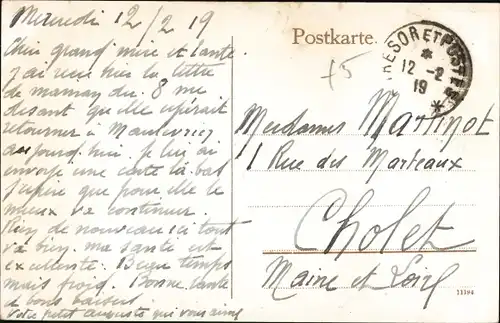 Mercredi 12/2 19
Chère grand mère et tante.
J'ai reçu hier la lettre
de maman du 8 me
disant qu'elle espérait
retourner à Maulevrier
aujourd'hui. Je lui ai
envoyé une carte là bas
J'espère que pour elle le
mieux va continuer.
Rien de nouveau ici tout
va bien. ma santé est
excellente. Beau temps
mais froid. Bonne santé
de bons baisers
Votre petit auguste qui vous aime
Postkarte.
TRESOR ET POSTES
12-2
19
Mesdames Martinot
1 Rue des Marteaux
Cholet
Maine et Loire
11194